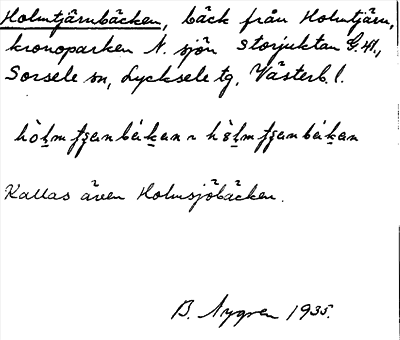 Holmtjärnbäcken, bäck från Holmtjärn,
kronoparken N. sjön Storjuktan G.41.,
Sorsele sn, Lycksele tg, Västerb. l.
Kallas även Holmsjöbäcken.
B. Nygren 1935.